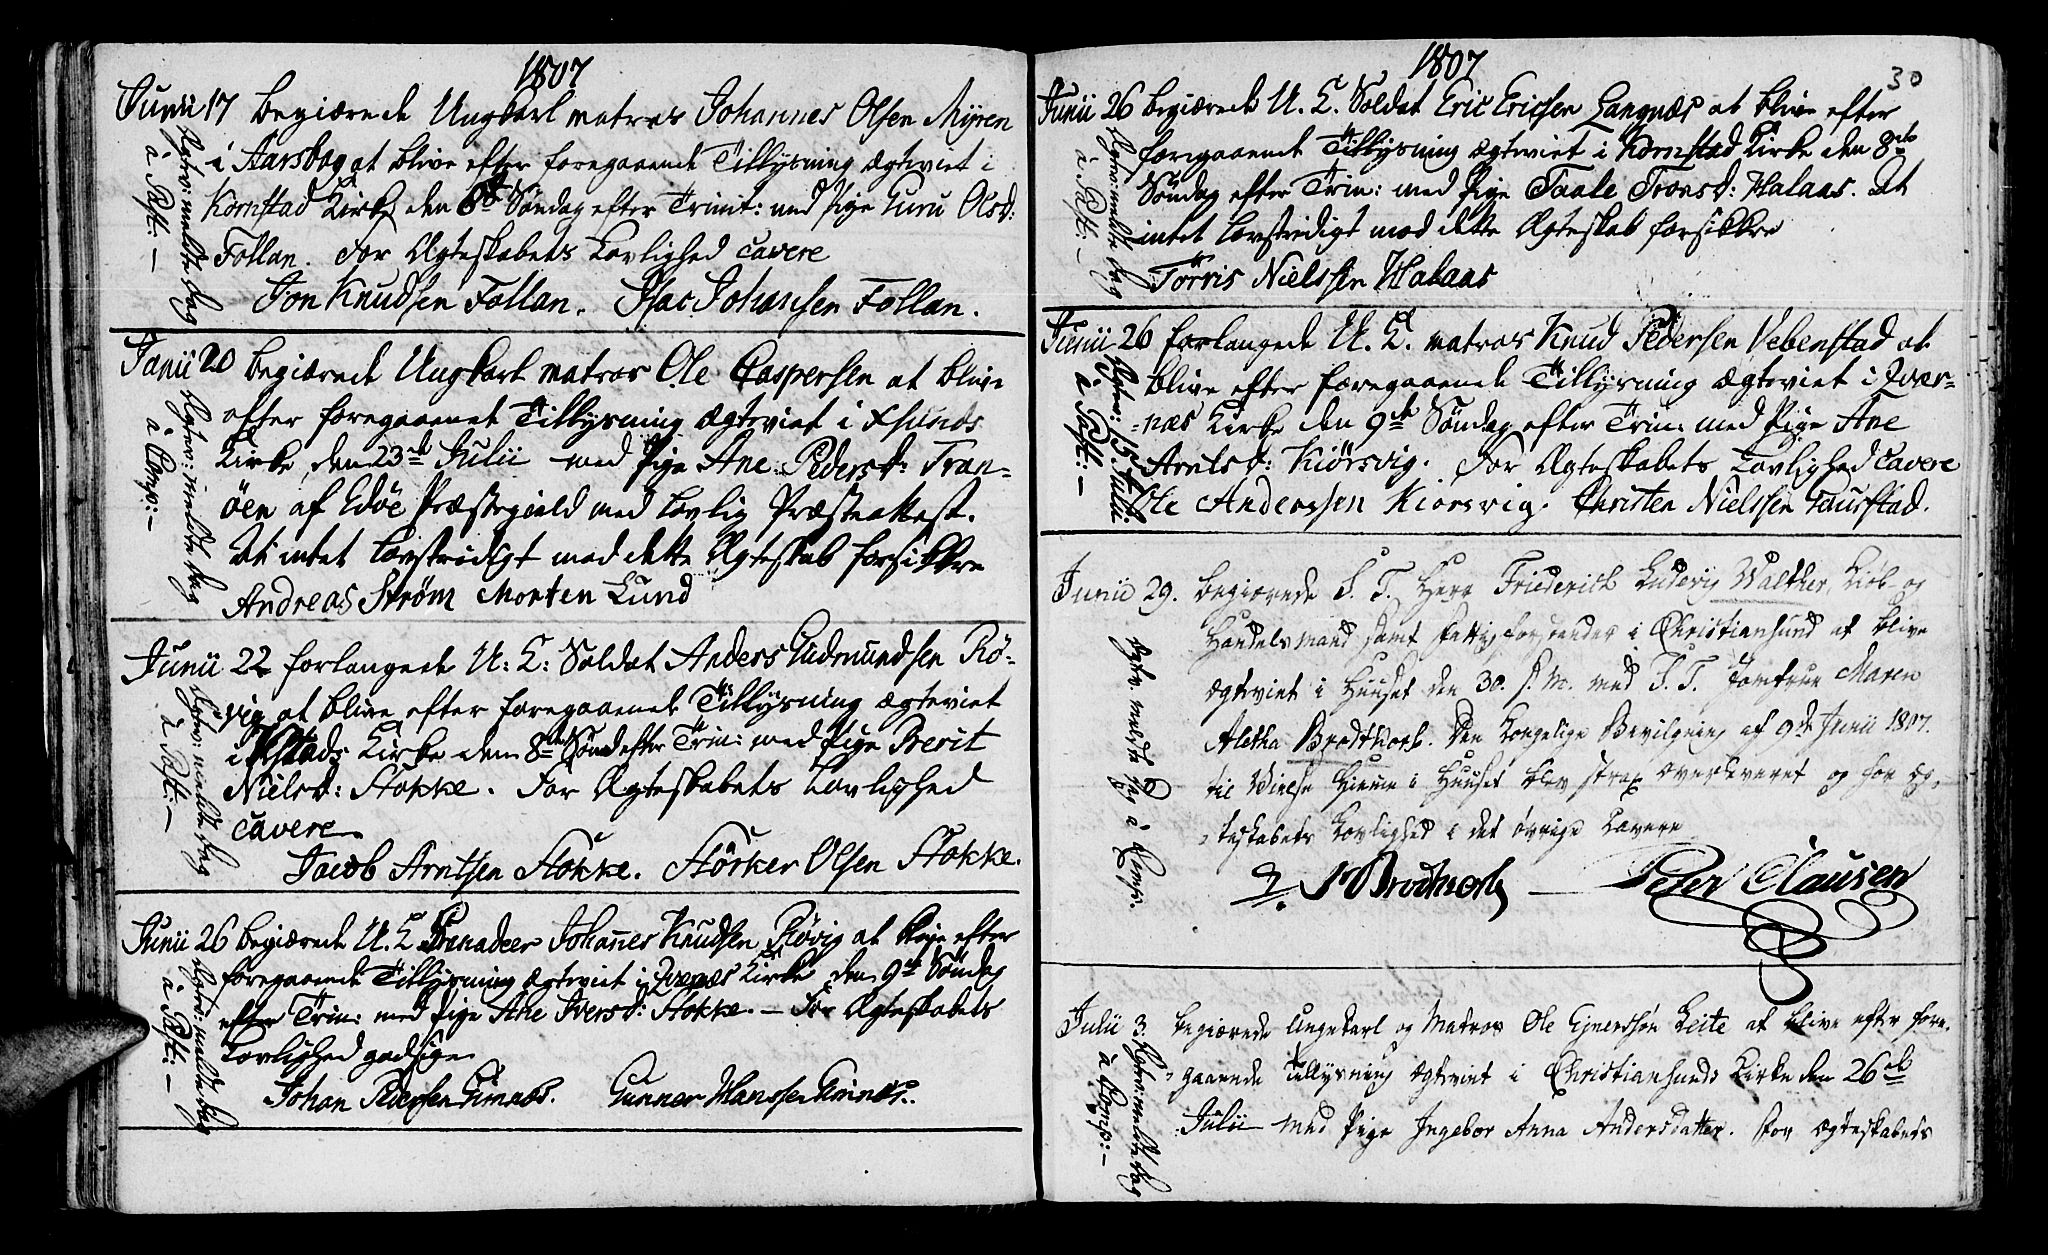 1807
Junii 17 begiærede Ungkarl matros Johannes Olsen Myren
i Aarsbog at blive efter foregaaende Tillysning ægteviet i
Kornstad Kirke den 8de Søndag efter Trinit: med Pige Guru Olsd:
Follan. For Ægteskabets Lovlighed cavere
Jon Knudsen Follan. Isac Johansen Follan.
Ægtev: meldte dag
à Past: —
Junii 20 begiærede Ungkarl matros Ole Caspersen at blive
efter foregaaende Tillysning ægteviet i Xsunds
Kirke den 23de Julii med Pige Ane Pedersd: Tran-
øen af Edøe Præstegield med lovlig Præsteattest.
At intet lovstridigt mod dette Ægteskab forsikkre
Andreas Strøm Morten Lund
Ægtev: meldte dag
à Cons: —
Junii 22 forlangede U: C: Soldat Anders Gudmundsen Rø-
vig at blive efter foregaaende Tillysning ægteviet
i Kirke den 8de Sønd efter Trin: med Pige Berit
Nielsd: Stokke. For Ægteskabets Lovlighed
cavere
Jacob Arntsen Stokke. Størker Olsen Stokke.
Ægtev: meldte dag
à Past: —
Junii 26 begiærede U. C. Grenadeer Johannes Knudsen Røvig at blive efter
foregaaende Tillysning ægteviet i Qvernæs Kirke den 9de Søndag
efter Trin: med Pige Ane Iversd: Stokke. — For Ægteskabets
Lovlighed godsige
Johan Pedersen Gimnæs. Gunner Hanssen Gimnæs.
Ægtev: meldte dag
à Past: —
1807
30
Junii 26 begiærede U. C. Soldat Eric Ericsen Langnæs at blive efter
foregaaende Tillysning ægteviet i Kornstad Kirke den 8de
Søndag efter Trin: med Pige Taale Tronsd: Halaas. At
intet lovstridigt mod dette Ægteskab forsikkre
Tørris Nielssen Halaas
Ægtev: meldte dag
à Past: —
Junii 26 forlangede U. C. matros Knud Pedersen Vebenstad at
blive efter foregaaende Tillysning ægteviet i Qver-
næs Kirke den 9de Søndag efter Trin: med Pige Ane
Arntsd: Kiørsvig. For Ægteskabets Lovlighed cavere
Ole Anderssen Kiorsvig. Christen Nielssen Gaustad.
Ægtev: 15 Julii
à Past: —
Junii 29. begiærede S. T. Herr Friderich Ludevig Walther, Kiøb- og
Handelsmand samt i Christiansund at blive
ægteviet i Huuset den 30. s. M. med S. T. Jomfrue Maren
Aletha Brodtkorb. Den Kongelige Bevilgning af 9de Junii 1807.
til Vielse Hiemme i Huuset blev strax overleveret og for Æg-
teskabets Lovlighed i det øvrige Cavere
N Brodtkorb Peter Clausen
Ægtv. meldte dag à Cons:
Julii 3: begiærede Ungekarl og Matros Ole Ejnerssøn Leite at blive efter fore-
gaaende Tillysning ægteviet i Christiansunds Kirke den 26de
Julii med Pige Ingebor Anna Andersdatter. For Ægteskabets
Ægtev: meldte dag
à Cons: —